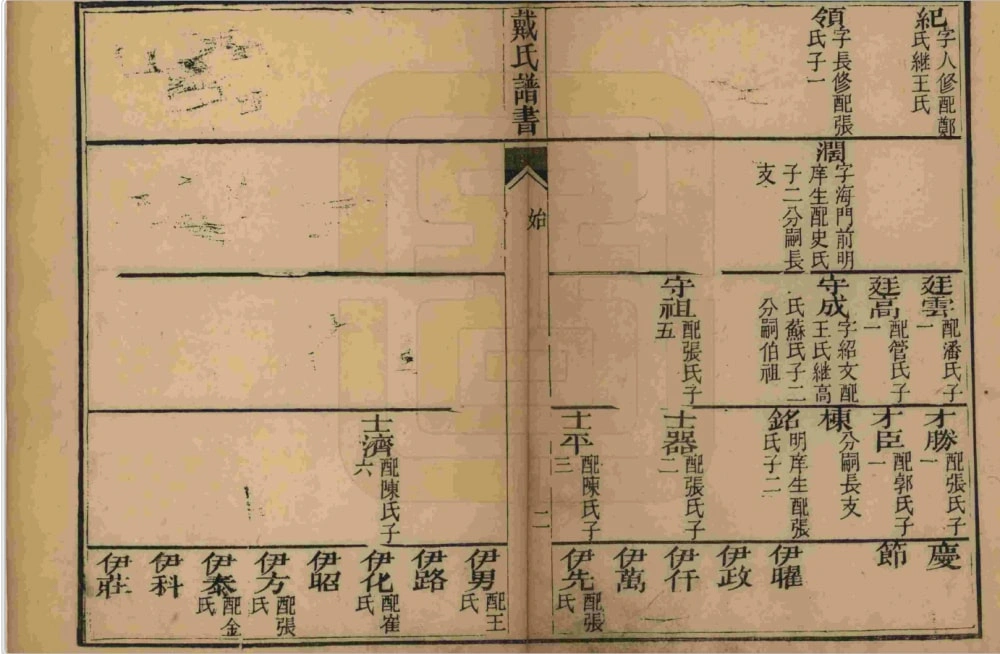 紀
字人修配鄭
氏継王氏
領
字長修配張
氏子一
濶
字海門前明
庠生配史氏
子二分嗣長
支
廷雲
配潘氏子
一
廷高
配管氏子
一
守成
字紹文配
王氏継高
氏蘇氏子二
分嗣伯祖
守祖
配張氏子
五
才勝
配張氏子
一
才臣
配郭氏子
一
棟
分嗣長支
銘
明庠生配張
氏子二
士器
配張氏子
二
士平
配陳氏子
三
慶
節
伊曜
伊政
伊仟
伊萬
伊先
配張
氏
戴氏譜書
始
二
士濟
配陳氏子
六
伊男
配王
氏
伊路
伊化
配崔
氏
伊昭
伊方
配張
氏
伊泰
配金
氏
伊科
伊莊